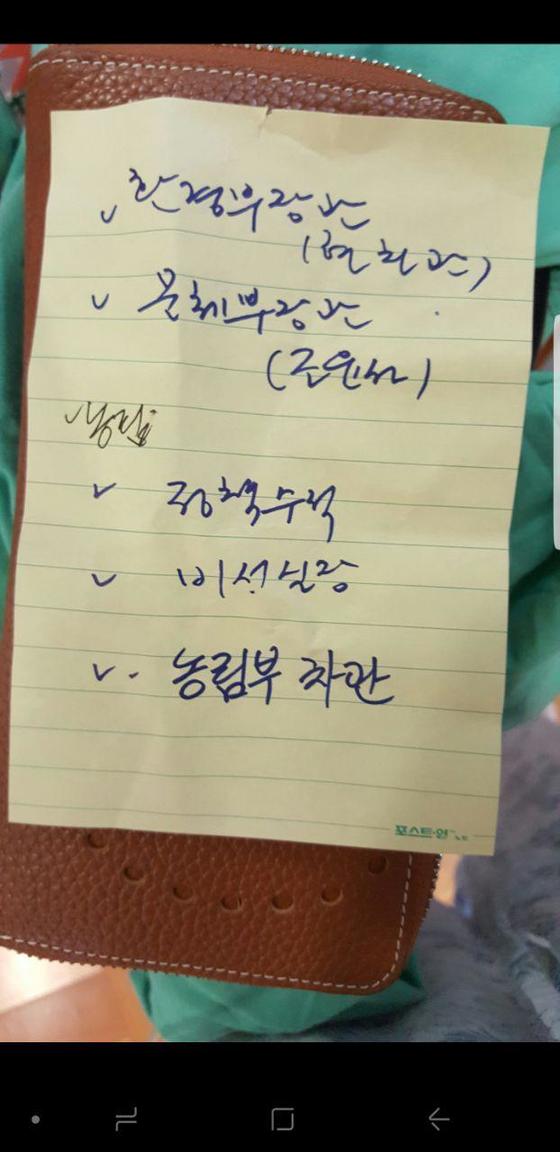 환경부장관
(현 차관)
문체부장관
(조윤선)
농담
정책수석
비서실장
농림부 차관
포스트·잇